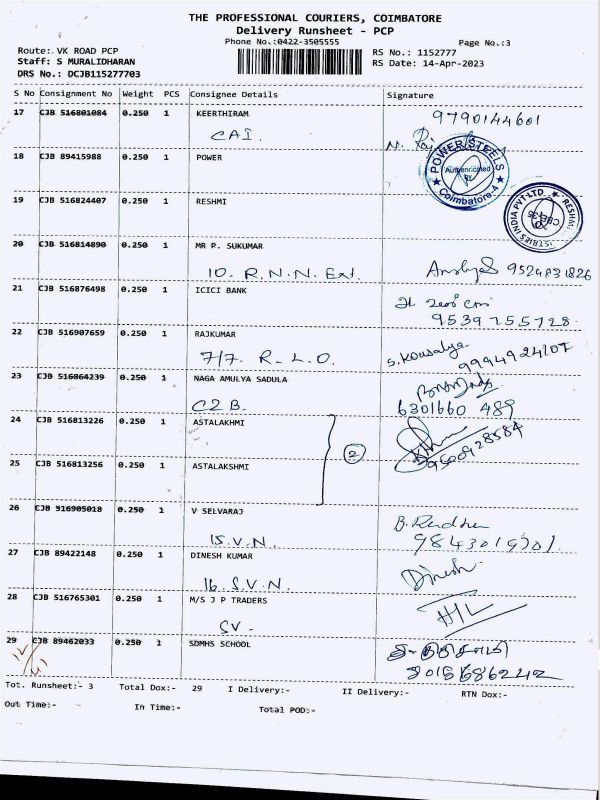 THE PROFESSIONAL COURIERS, COIMBATORE
Delivery Runsheet - PCP
Phone No.:0422-3505555
Page No.:3
Route: VK ROAD PCP
RS No.: 1152777
Staff: S MURALIDHARAN
RS Date: 14-Apr-2023
DRS No.: DCJB115277703
S No Consignment No Weight PCS Consignee Details Signature
17 CJB 516801084 0.250 1 KEERTHIRAM 9790144601
CAI.
18 CJB 89415988 0.250 1 POWER
POWER STEELS
Authenticated
Coimbatore-4
19 CJB 516824407 0.250 1 RESHMI
RESHMI
INDIA PVT LTD
20 CJB 516814890 0.250 1 MR P. SUKUMAR
10. R.N.N. Ext. 9524831826
21 CJB 516876498 0.250 1 ICICI BANK
9539755728
22 CJB 516907659 0.250 1 RAJKUMAR
7/7. R.L.O. S. Kousalya
9994924107
23 CJB 516864239 0.250 1 NAGA AMULYA SADULA
C2B. 6301660 489
24 CJB 516813226 0.250 1 ASTALAKHMI
2
9500928584
25 CJB 516813256 0.250 1 ASTALAKSHMI
26 CJB 516905018 0.250 1 V SELVARAJ
15. V.N.
27 CJB 89422148 0.250 1 DINESH KUMAR Dinesh
16. S.V.N.
28 CJB 516765301 0.250 1 M/S J P TRADERS
SV.
29 CJB 89462033 0.250 1 SDMHS SCHOOL
Tot. Runsheet:- 3 Total Dox:- 29 I Delivery:- II Delivery:- RTN Dox:-
Out Time:- In Time:- Total POD:-